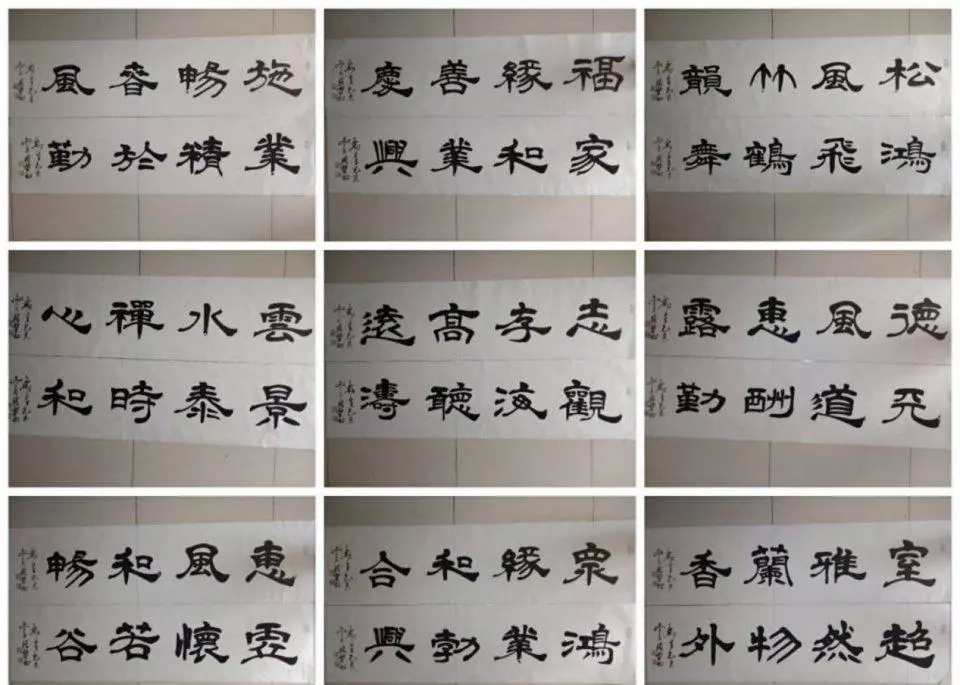 施暢春風
業精於勤
福緣善慶
家和業興
松風竹韻
鴻飛鶴舞
雲水禪心
景泰時和
志存高遠
觀海聽濤
德風惠露
天道酬勤
惠風和暢
虛懷若谷
眾緣和合
鴻業勃興
室雅蘭香
超然物外